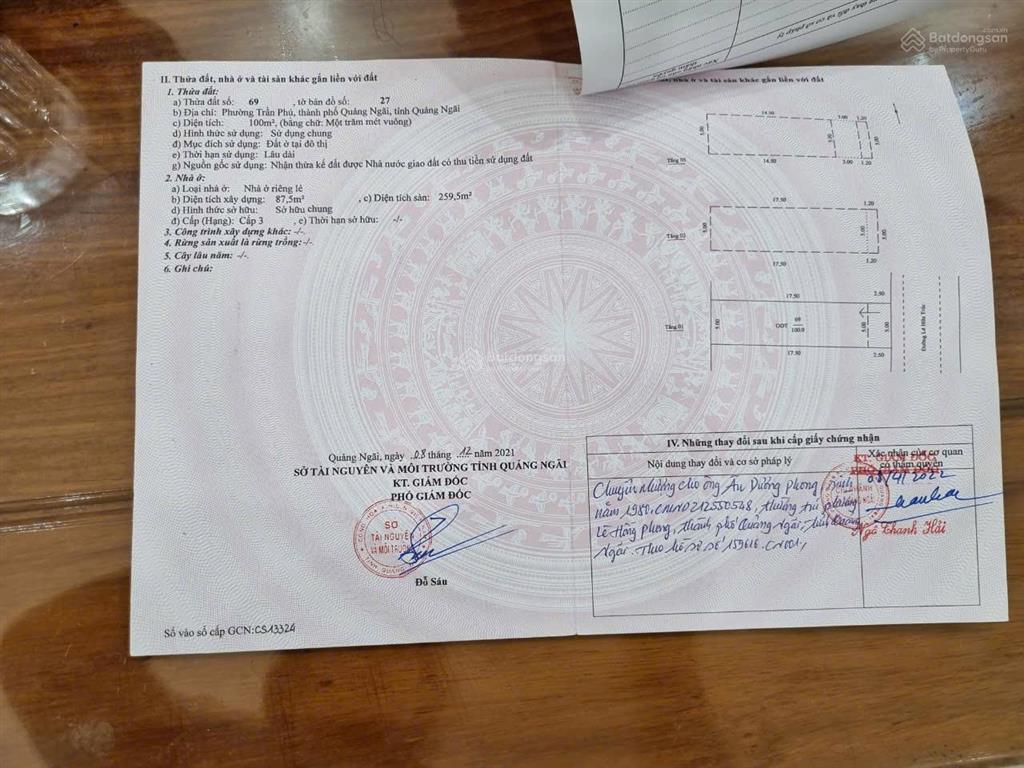 Batdongsan
by PropertyGuru
II. Thửa đất, nhà ở và tài sản khác gắn liền với đất
1. Thửa đất:
a) Thửa đất số: 69 , tờ bản đồ số: 27
b) Địa chỉ: Phường Trần Phú, thành phố Quảng Ngãi, tỉnh Quảng Ngãi
c) Diện tích: 100m², (bằng chữ: Một trăm mét vuông)
d) Hình thức sử dụng: Sử dụng chung
đ) Mục đích sử dụng: Đất ở tại đô thị
e) Thời hạn sử dụng: Lâu dài
g) Nguồn gốc sử dụng: Nhận thừa kế đất được Nhà nước giao đất có thu tiền sử dụng đất
2. Nhà ở:
a) Loại nhà ở: Nhà ở riêng lẻ
b) Diện tích xây dựng: 87,5m² , c) Diện tích sàn: 259,5m²
d) Hình thức sở hữu: Sở hữu chung
đ) Cấp (Hạng): Cấp 3 , e) Thời hạn sở hữu: -/-
3. Công trình xây dựng khác: -/-.
4. Rừng sản xuất là rừng trồng:-/-
5. Cây lâu năm: -/-.
6. Ghi chú:
Quảng Ngãi, ngày 08 tháng 12 năm 2021
SỞ TÀI NGUYÊN VÀ MÔI TRƯỜNG TỈNH QUẢNG NGÃI
KT. GIÁM ĐỐC
PHÓ GIÁM ĐỐC
SỞ
TÀI NGUYÊN
VÀ MÔI TRƯỜNG
Đỗ Sáu
Số vào sổ cấp GCN:CS13324
nhà ở và tài sản khác gắn liền với đất
14.50 3.00 1.20
5.00 5.00 5.00
Tầng 03 14.50 3.00 1.20
17.50 1.20
5.00 5.00 5.00
Tầng 02
17.50 1.20
17.50 2.50
5.00 ODT 69 5.00 5.00
100.0
Tầng 01
17.50 2.50
Đường Lê Hữu Trác
Batdongsan
IV. Những thay đổi sau khi cấp giấy chứng nhận
Nội dung thay đổi và cơ sở pháp lý
Xác nhận của cơ quan
có thẩm quyền
KT. GIÁM ĐỐC
Chuyển nhượng cho ông Âu Dương Phong, sinh
năm 1980, CMND 212550548, thường trú phường
Lê Hồng Phong, thành phố Quảng Ngãi, tỉnh Quảng
Ngãi. Theo hồ sơ số 159616.CN001,
Ngô Thanh Hải